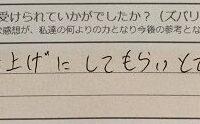 受けられていかがでしたか？（ズバリ
感想が、私達の何よりの力となり今後の参考とな
上げにしてもらいとて